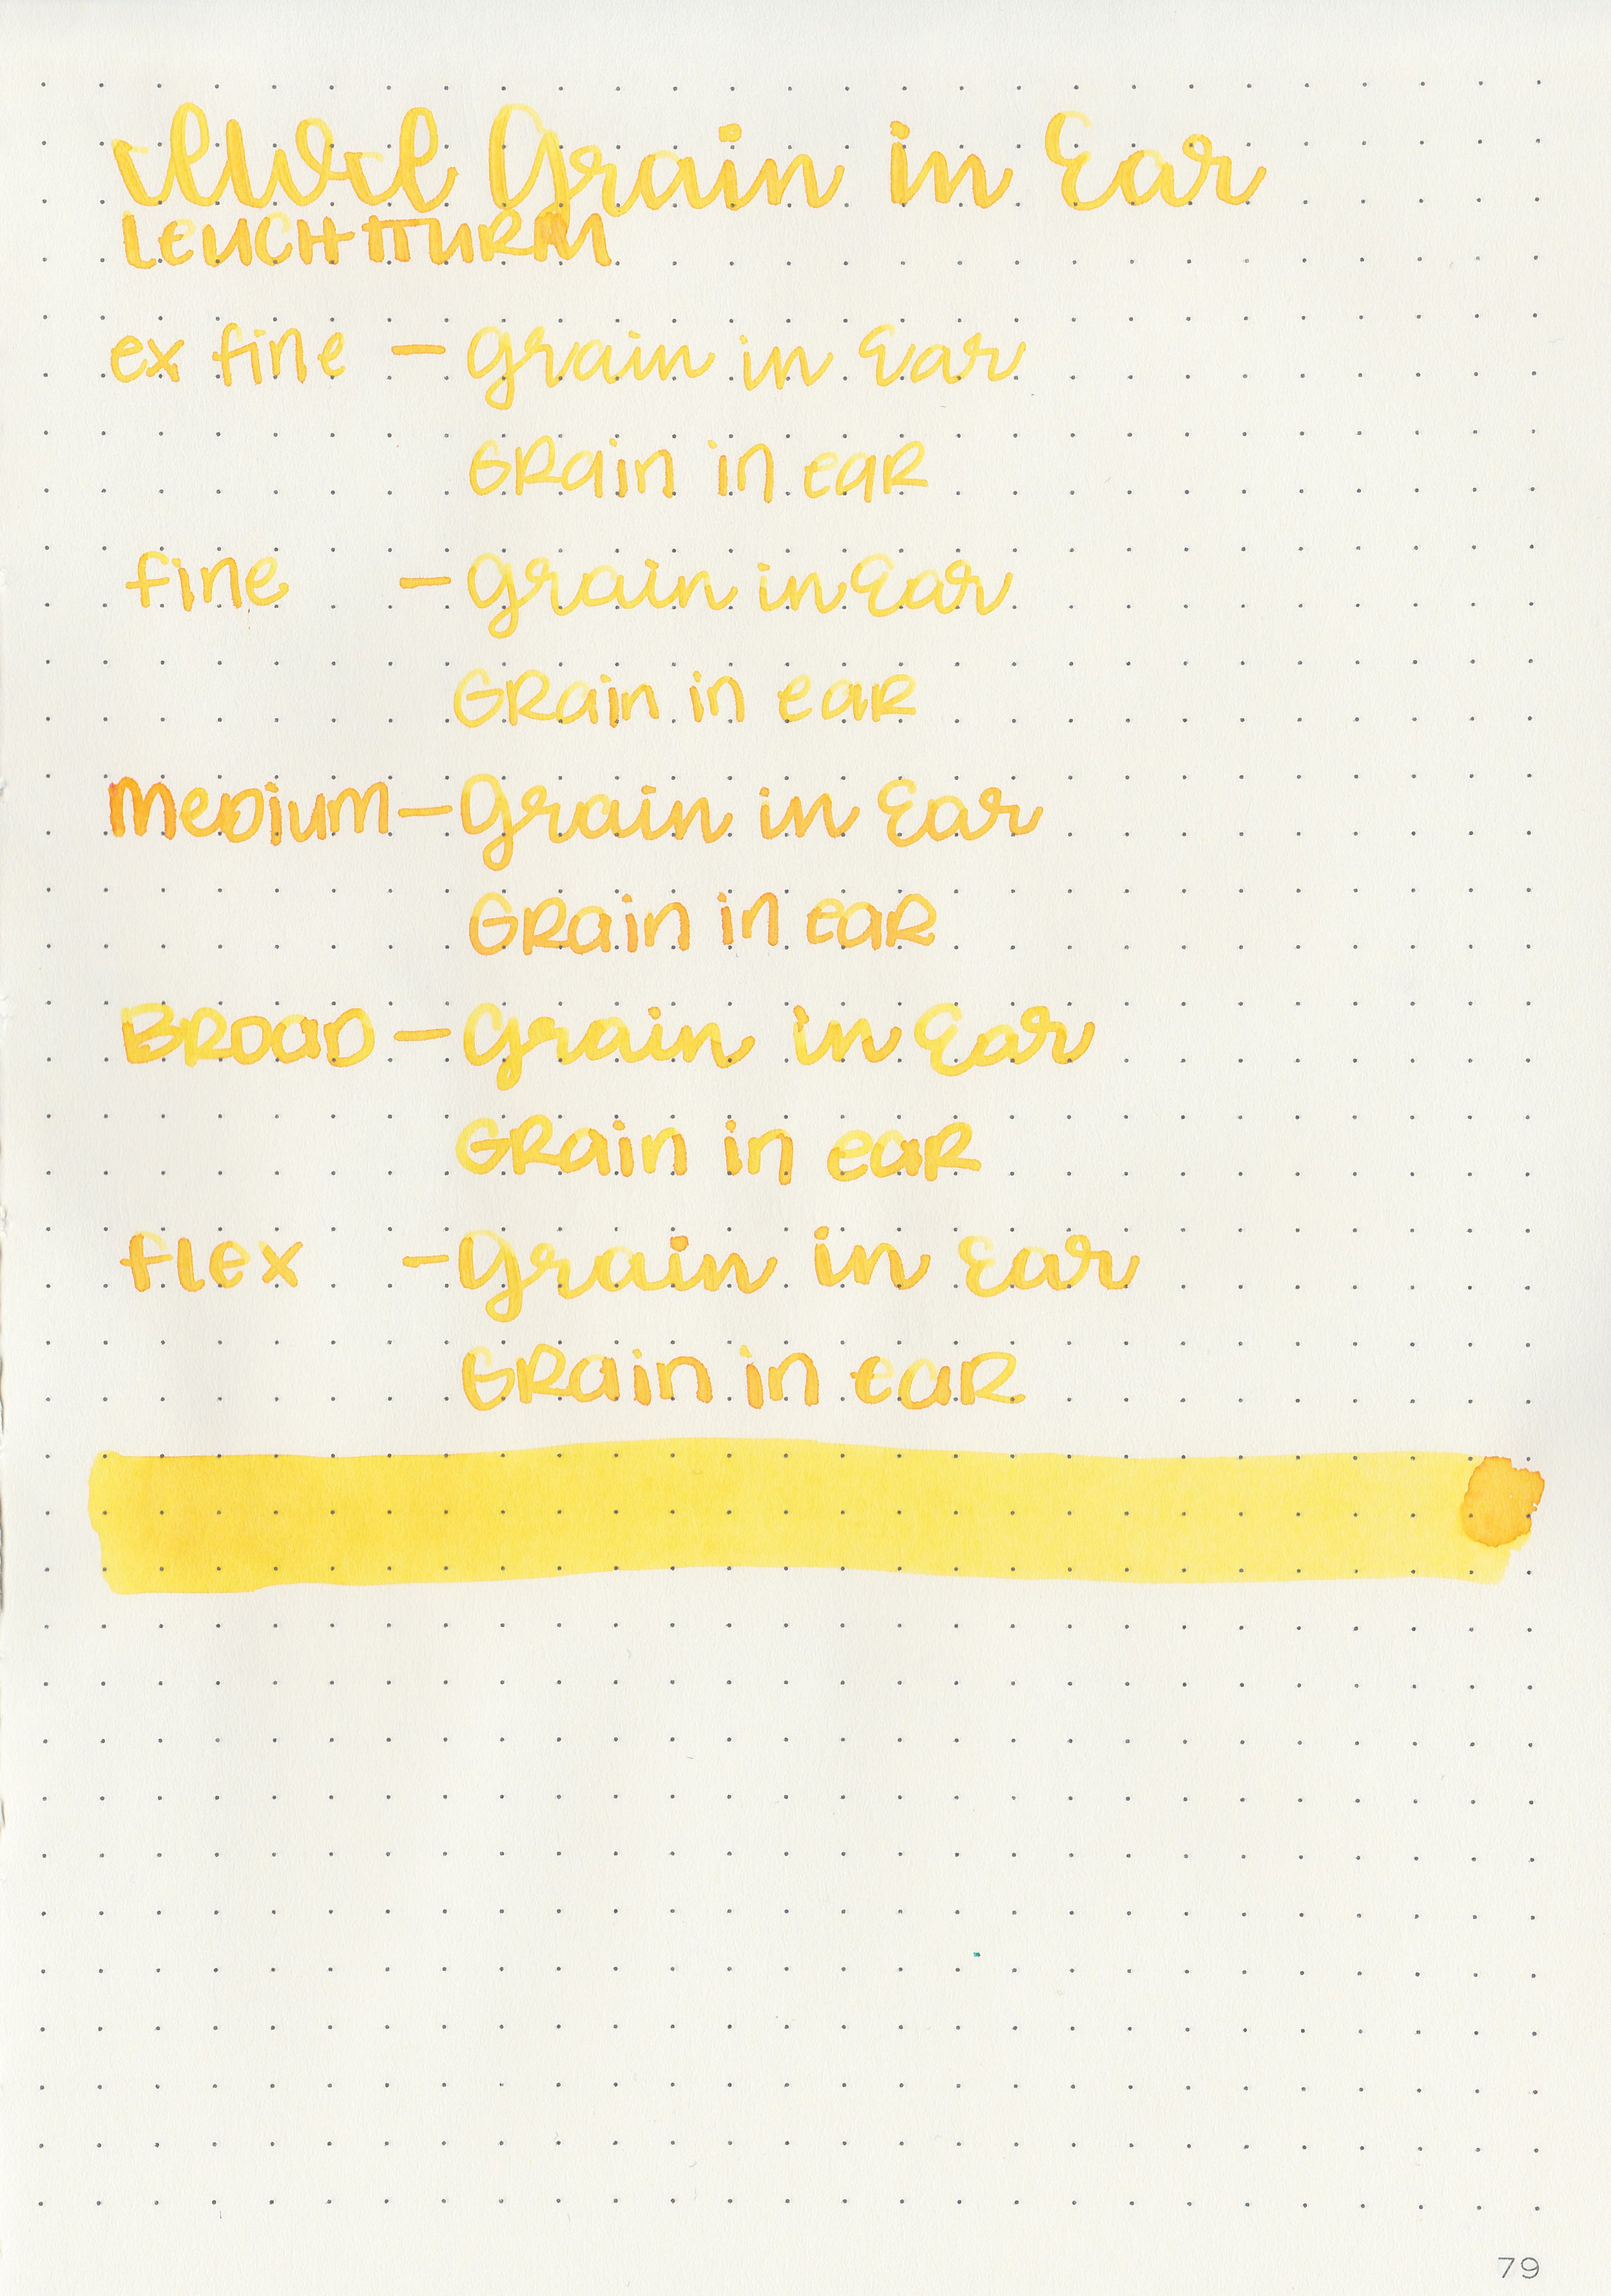 IWI Grain in Ear
LEUCHTTURM
ex fine - Grain in Ear
GRain in eaR
fine - Grain in Ear
GRain in eaR
MeDium - Grain in Ear
GRain in eaR
BROaD - Grain in Ear
GRain in eaR
flex - Grain in Ear
GRain in eaR
79